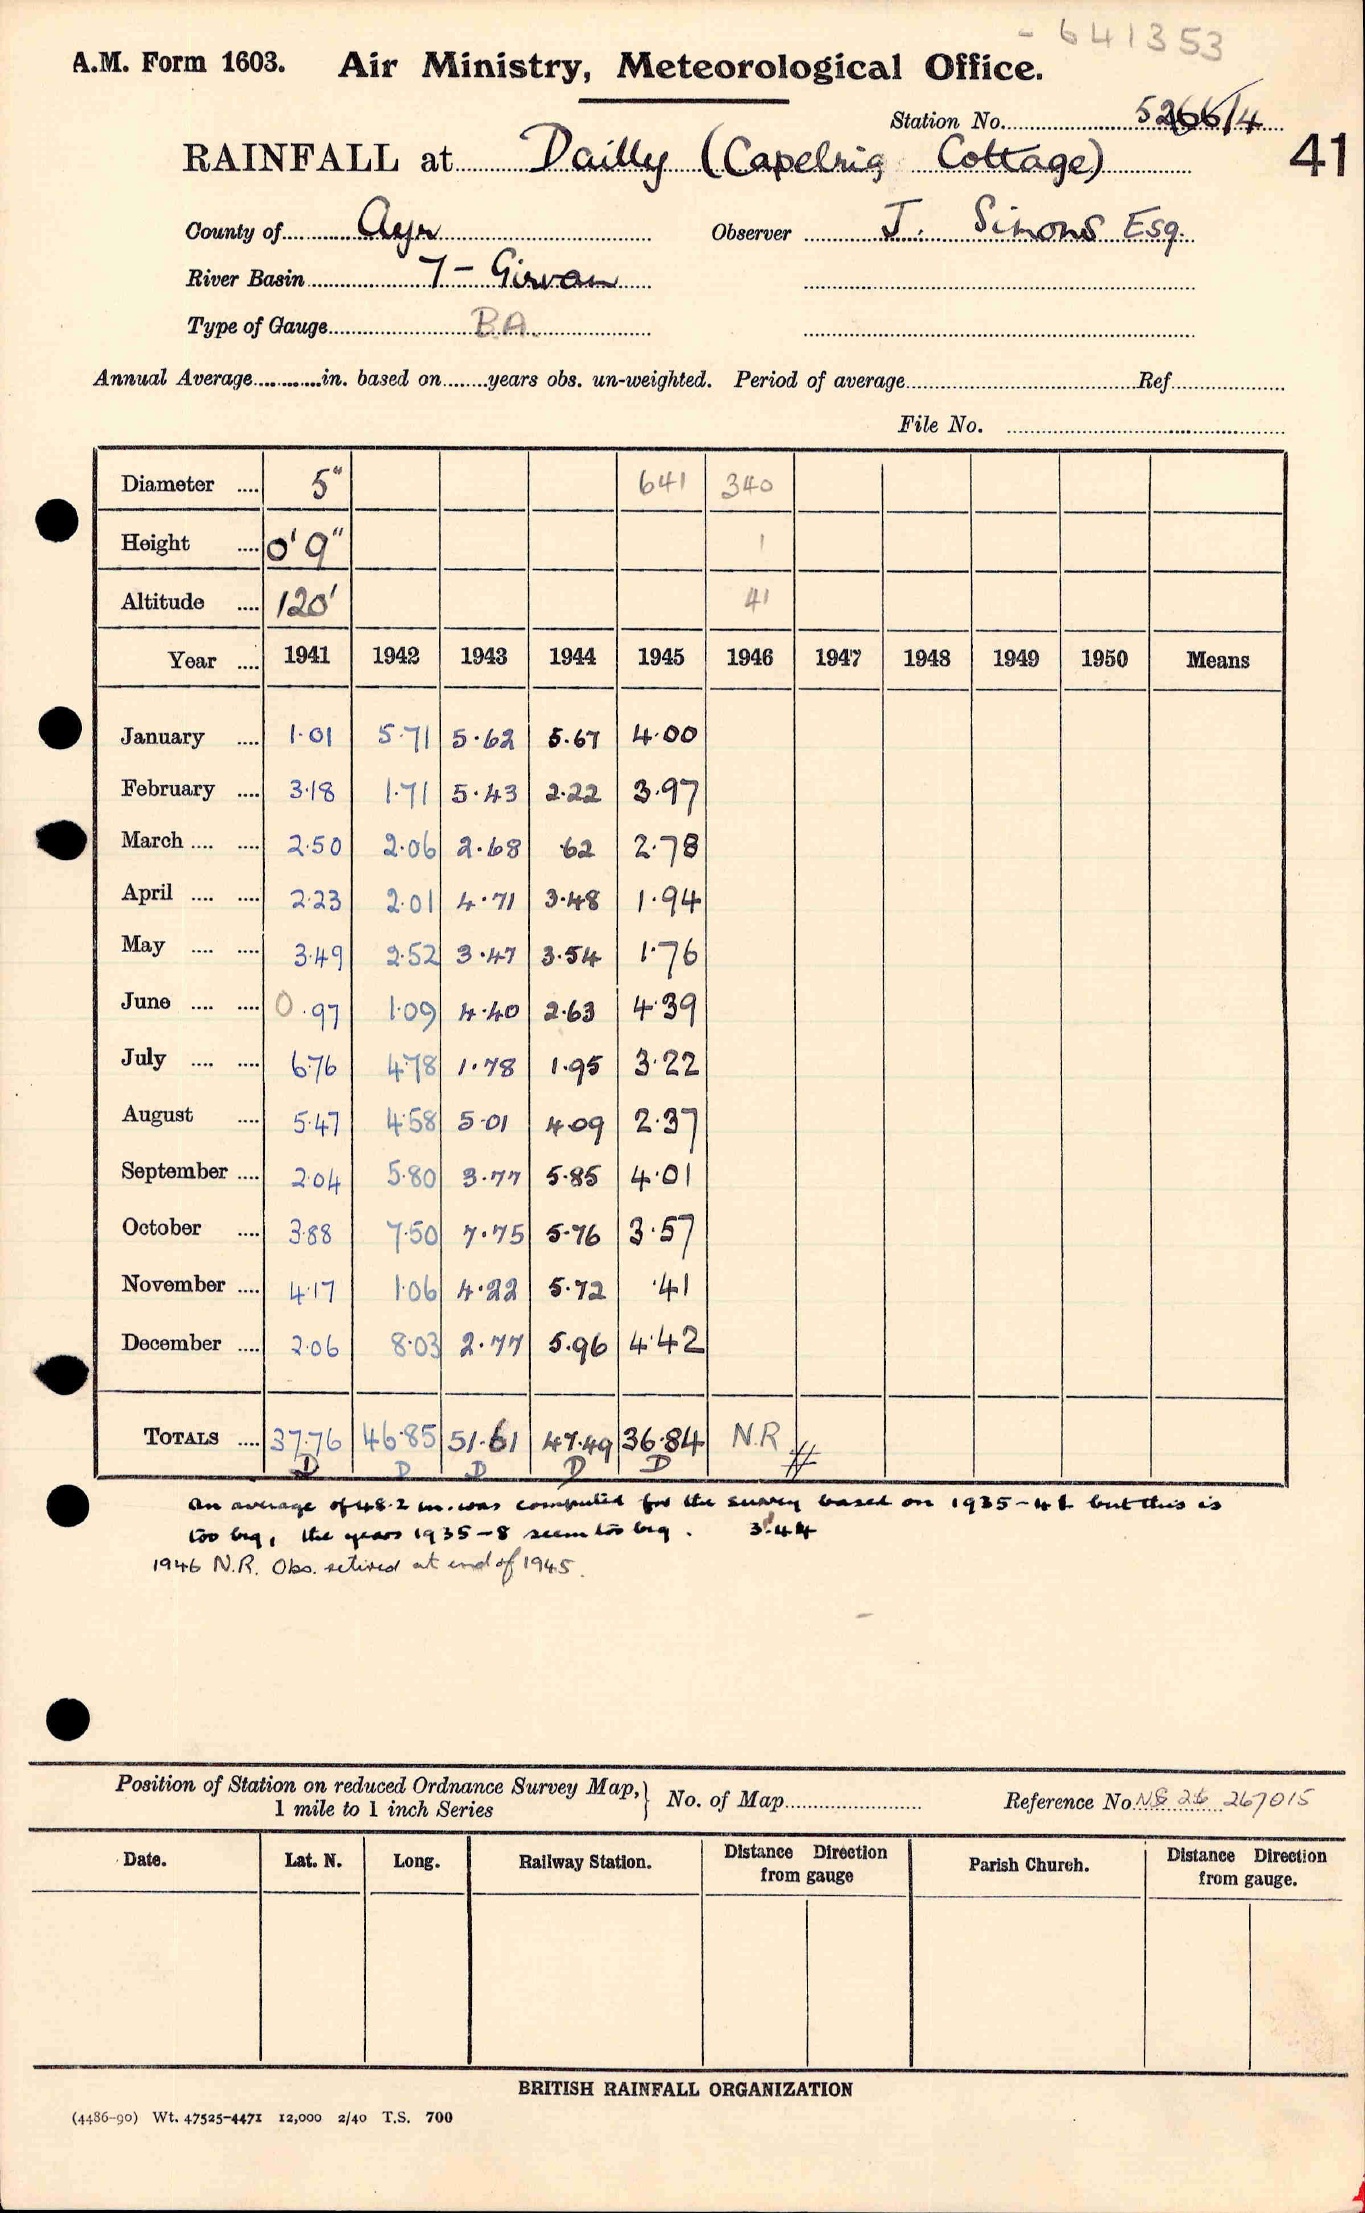 - 641353
A.M. Form 1603. Air Ministry, Meteorological Office.
Station No. 5266/4
RAINFALL at Dailly (Capelrig Cottage) 41
County of Ayr Observer J. Simons Esq.
River Basin 7 - Girvan
Type of Gauge B.A.
Annual Average in. based on years obs. un-weighted. Period of average Ref
File No.
Diameter .... 5" 641 340
Height .... 0' 9" 1
Altitude .... 120' 41
Year .... 1941 1942 1943 1944 1945 1946 1947 1948 1949 1950 Means
January .... 1.01 5.71 5.62 5.67 4.00
February .... 3.18 1.71 5.43 2.22 3.97
March .... .... 2.50 2.06 2.68 .62 2.78
April .... .... 2.23 2.01 4.71 3.48 1.94
May .... .... 3.49 2.52 3.47 3.54 1.76
June .... .... 0.97 1.09 4.40 2.63 4.39
July .... .... 6.76 4.78 1.78 1.95 3.22
August .... 5.47 4.58 5.01 4.09 2.37
September .... 2.04 5.80 3.77 5.85 4.01
October .... 3.88 7.50 7.75 5.76 3.57
November .... 4.17 1.06 4.22 5.72 .41
December .... 2.06 8.03 2.77 5.96 4.42
TOTALS .... 37.76 46.85 51.61 47.49 36.84 N.R #
D D D D D
An average of 48.2 in. was computed for the survey based on 1935-41 but this is
too big, the years 1935-8 seem too big. 3.44
1946 N.R. Obs. retired at end of 1945.
Position of Station on reduced Ordnance Survey Map, } No. of Map Reference No NS 26 267015
1 mile to 1 inch Series
Date. Lat. N. Long. Railway Station. Distance Direction from gauge Parish Church. Distance Direction from gauge.
BRITISH RAINFALL ORGANIZATION
(4486-90) Wt. 47525-4471 12,000 2/40 T.S. 700